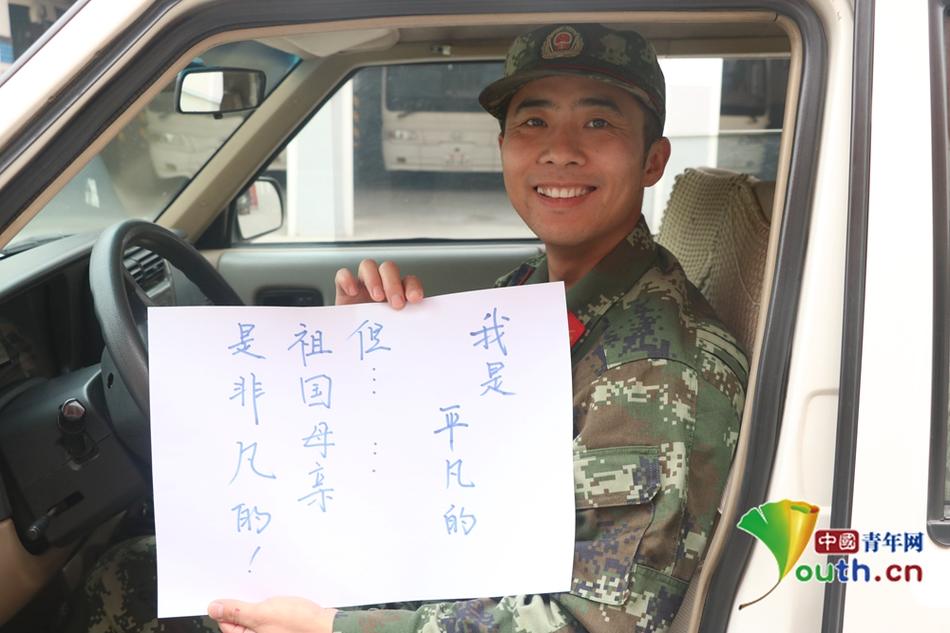 我是
平凡的
但……
祖国母亲
是非凡的！
中國青年网
Youth.cn